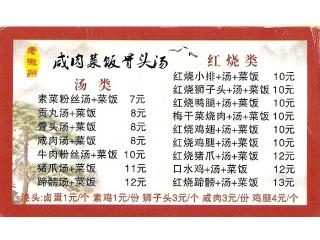 老徽州
咸肉菜饭骨头汤
汤类
素菜粉丝汤+菜饭 7元
贡丸汤+菜饭 8元
骨头汤+菜饭 8元
咸肉汤+菜饭 8元
牛肉粉丝汤+菜饭 11元
猪爪汤+菜饭 11元
蹄髈汤+菜饭 12元
红烧类
红烧小排+汤+菜饭 10元
红烧狮子头+汤+菜饭 10元
红烧鸭腿+汤+菜饭 10元
梅干菜烧肉+汤+菜饭 10元
红烧鸡翅+汤+菜饭 10元
红烧鸡腿+汤+菜饭 10元
红烧猪爪+汤+菜饭 12元
口水鸡+汤+菜饭 12元
红烧蹄髈+汤+菜饭 13元
浇头:卤蛋1元/个 素鸡1元/份 狮子头3元/个 咸肉3元/份 鸡腿4元/个